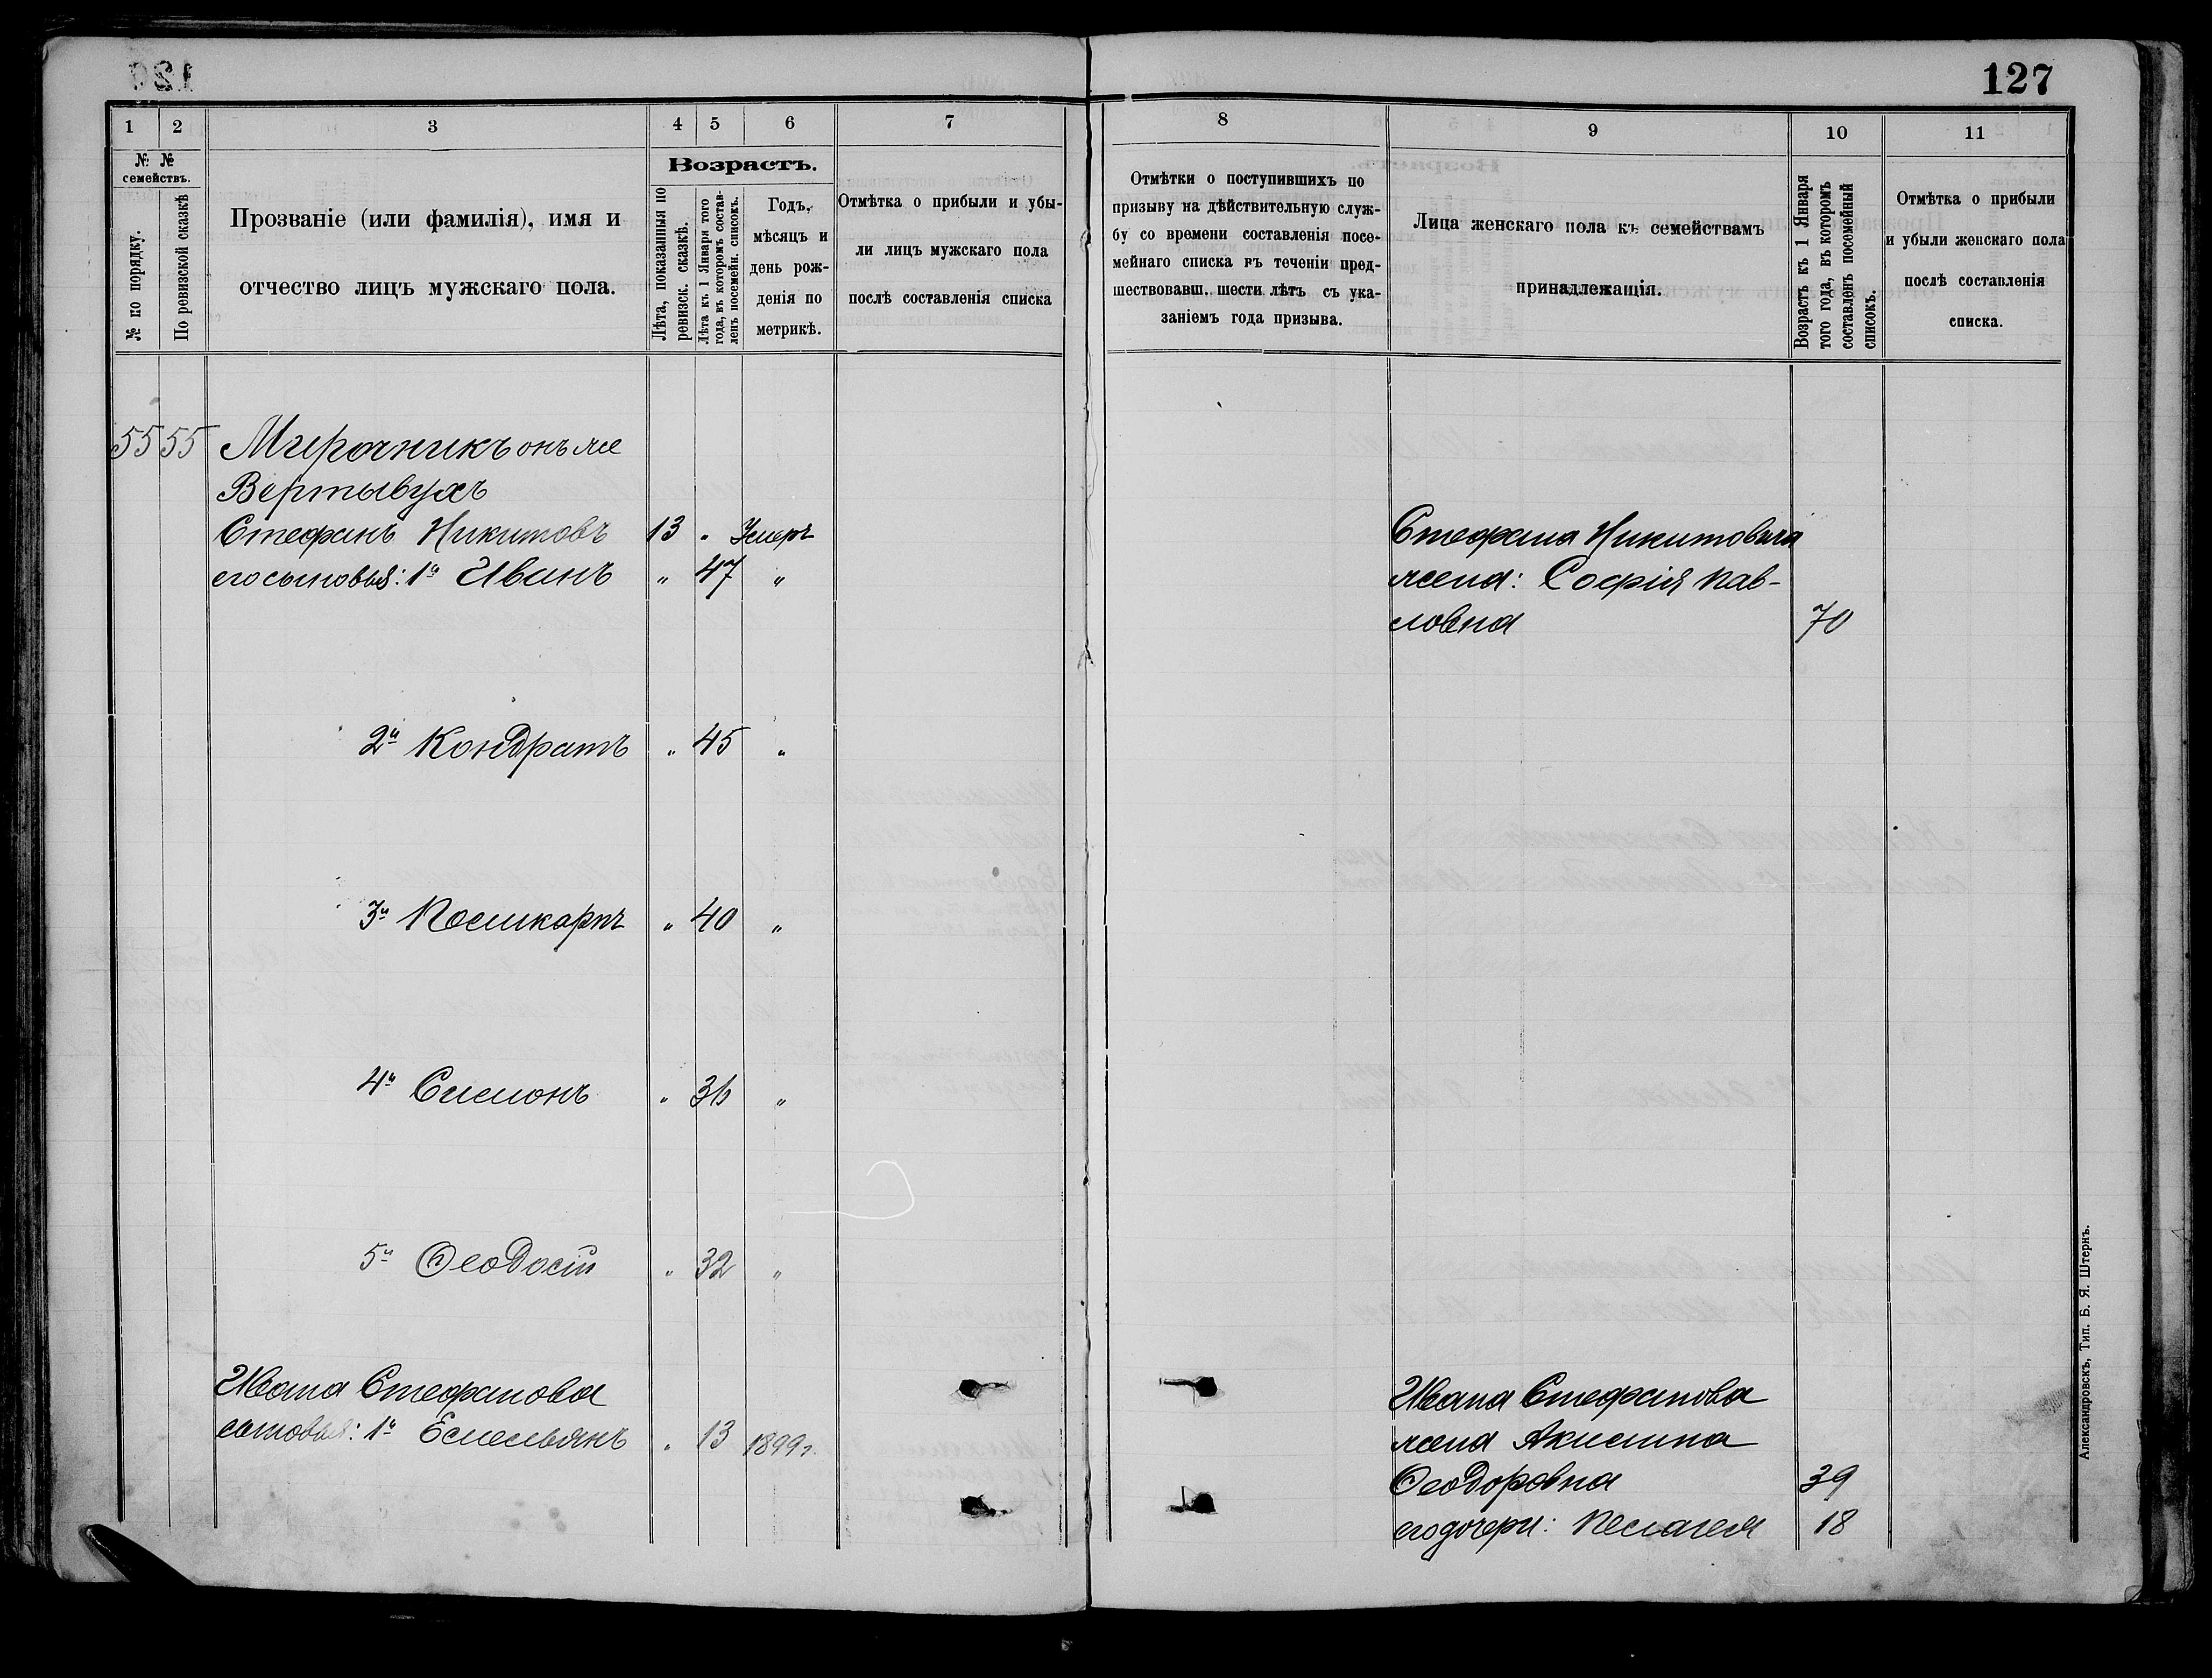 127
1
2
3
4
5
6
7
8
9
10
11
№ №
семействъ.
№ по порядку.
По ревизской сказкѣ
Прозваніе (или фамилія), имя и
отчество лицъ мужскаго пола.
Возрастъ.
Лѣта, показанныя по
ревизск. сказкѣ.
Лѣта къ 1 Января того
года, въ которомъ состав-
ленъ посемейн. списокъ.
Годъ,
мѣсяцъ и
день рож-
денія по
метрикѣ.
Отмѣтка о прибыли и убы-
ли лицъ мужскаго пола
послѣ составленія списка
Отмѣтки о поступившихъ по
призыву на дѣйствительную служ-
бу со времени составленія посе-
мейнаго списка въ теченіи пред-
шествовавш. шести лѣтъ съ ука-
заніемъ года призыва.
Лица женскаго пола къ семействамъ
принадлежащія.
Возрастъ къ 1 Января
того года, въ которомъ
составленъ посемейный
списокъ.
Отмѣтка о прибыли
и убыли женскаго пола
послѣ составленія
списка.
55 55 Мирочникъ онъ же
Вертывухъ
Стефанъ Никитовъ 13 " Умеръ
его сыновья: 1й Иванъ " 47 "
2й Кондратъ " 45 "
3й Поликарпъ " 40 "
4й Симонъ " 36 "
5й Ѳеодосій " 32 "
Ивана Стефанова
сыновья: 1й Емельянъ " 13 1899г.
Стефана Никитовича
жена: Софія Пав-
ловна 70
Ивана Стефанова
жена Акилина
Ѳеодоровна 39
его дочери: Пелагея 18
Александровскъ, Тип. Б. Я. Штернъ.